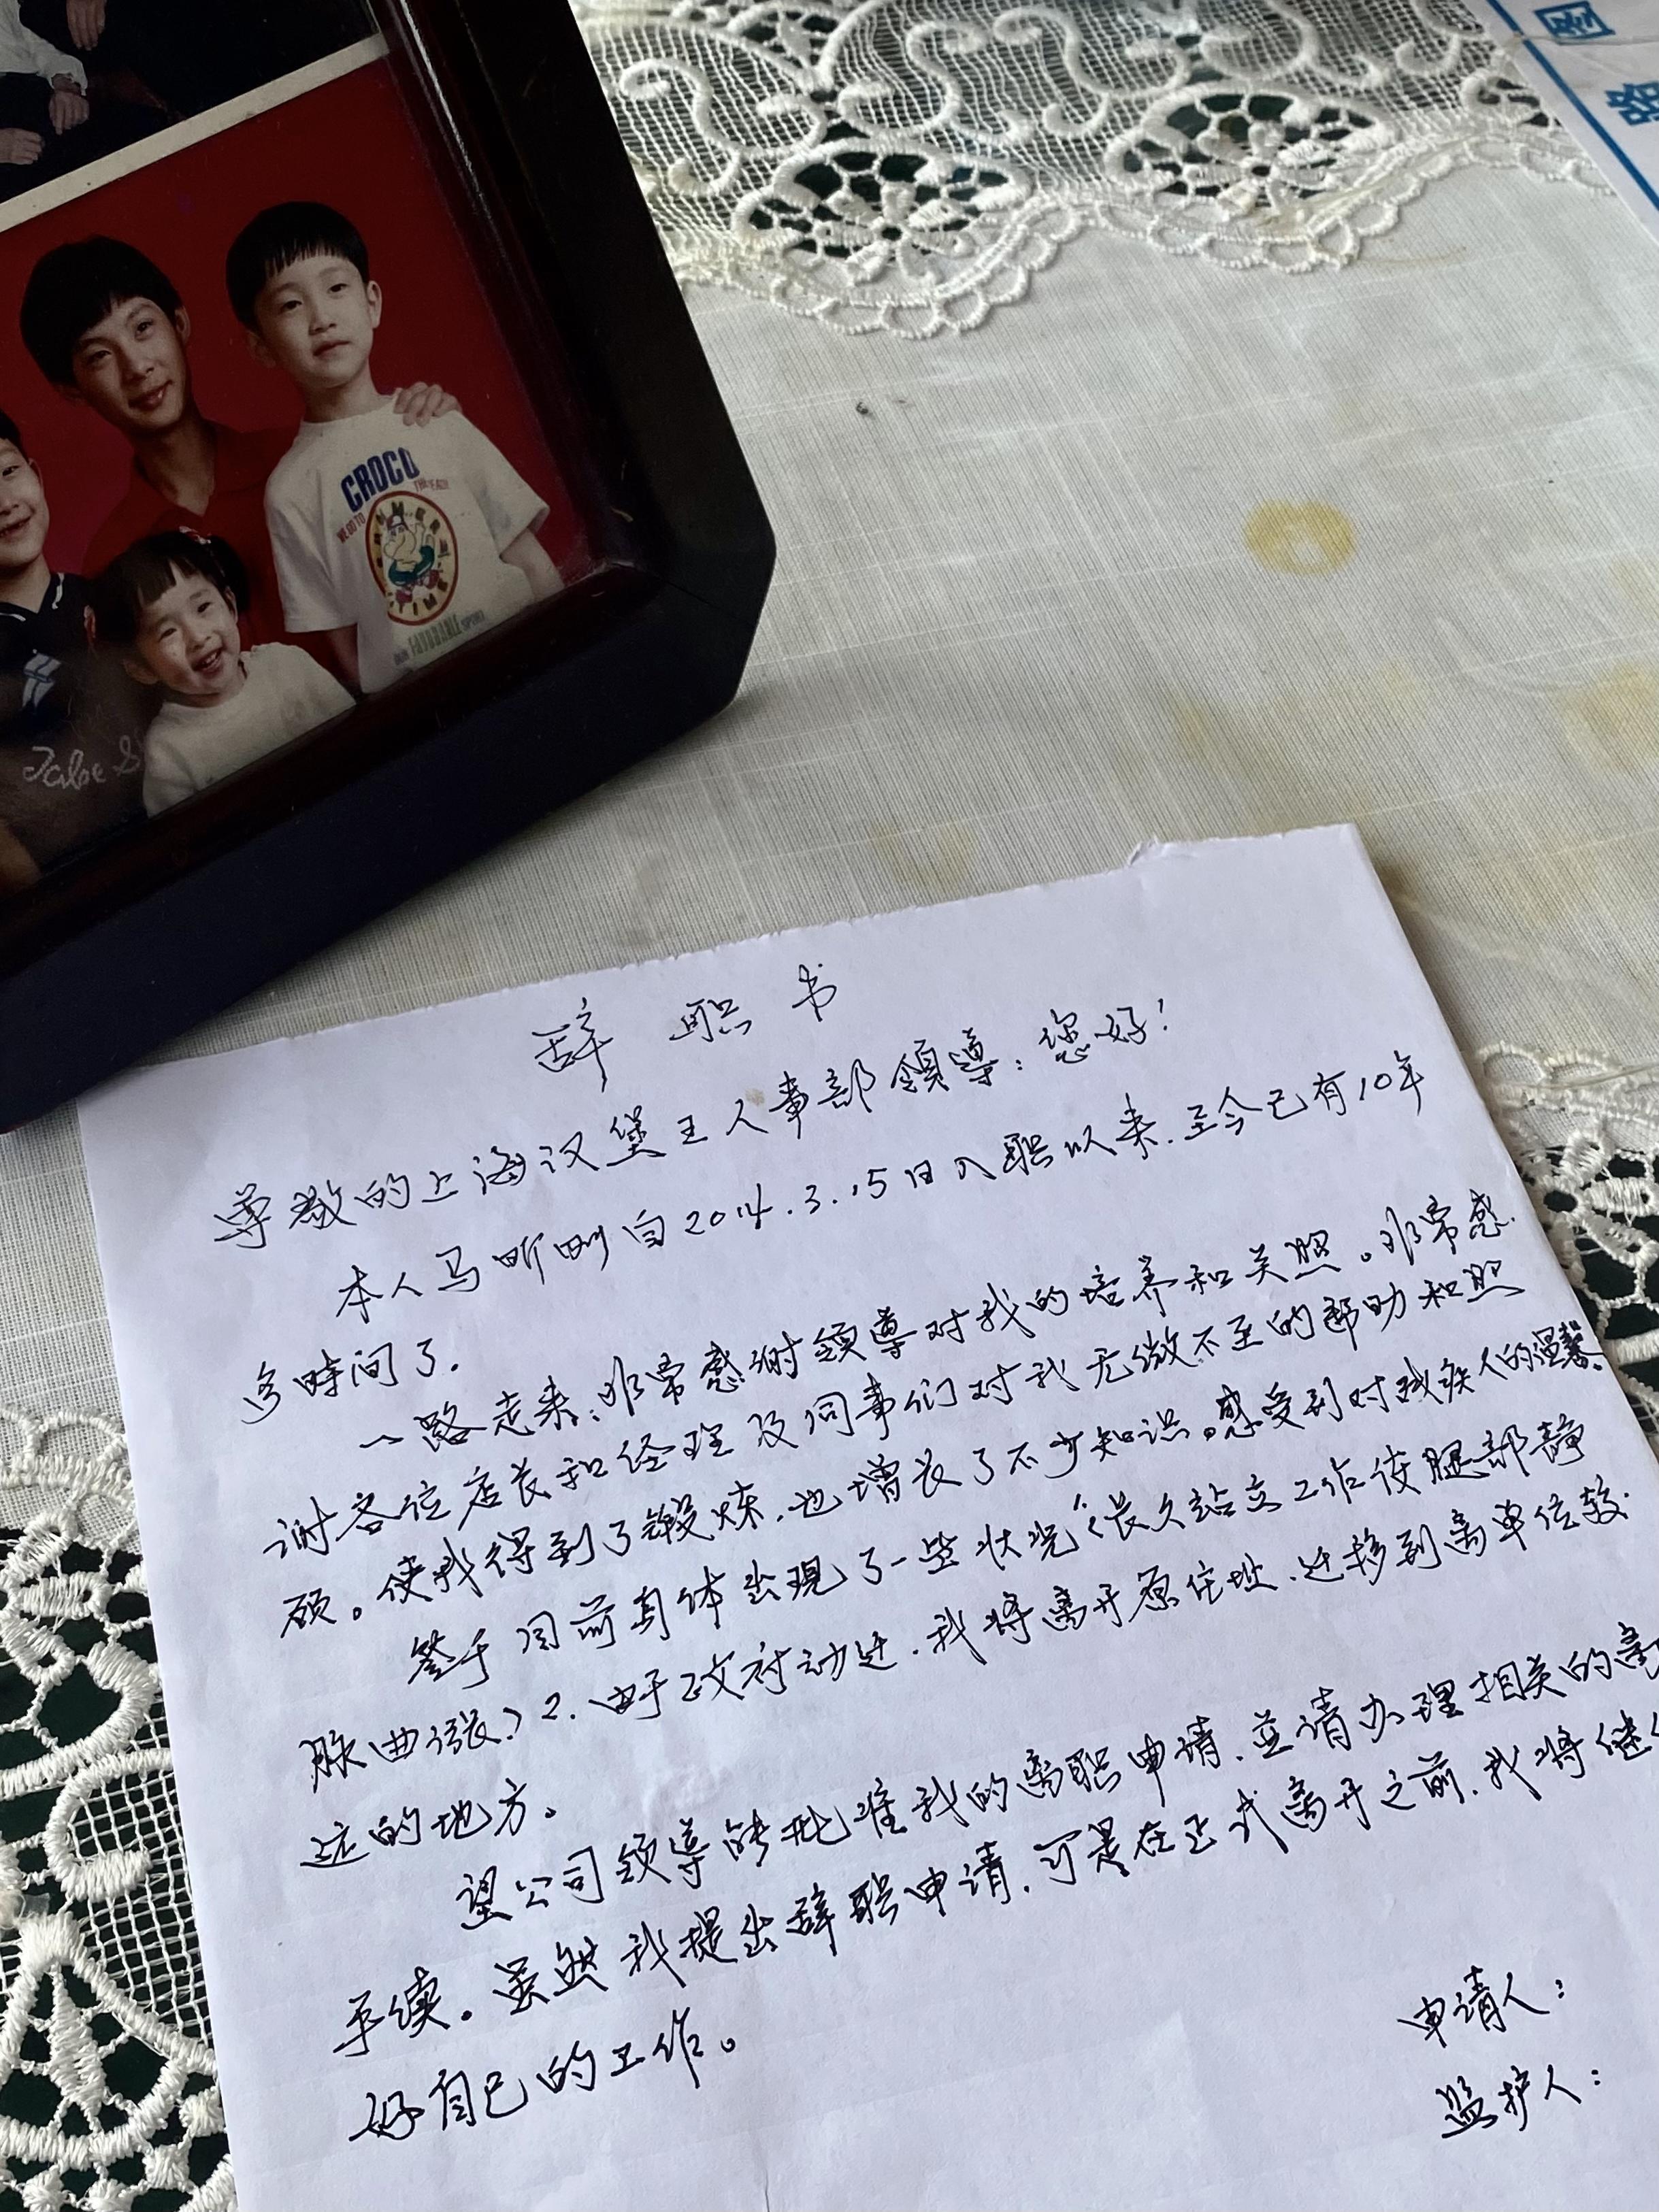 图
路
CROCO
WE GO TO
SUMMER
TIME
FAVORABLE SPORT
辞职书
尊敬的上海汉堡王人事部領導：您好！
本人马昕刚自2014.3.15日入职以来.至今已有10年
多時间了.
一路走来,非常感谢领導对我的培养和关照。非常感
谢各位店长和经理及同事们对我无微不至的帮助和照
顾。使我得到了锻炼.也增长了不少知识。感受到对残疾人的温馨。
签于目前身体出現了一些状况(长久站立工作使腿部静
脉曲张)2.由于政府动迁.我将离开原住址.迁移到离单位较
远的地方。
望公司领导能批准我的离职申请.並请办理相关的离
手续。虽然我提出辞职申请.可是在正式离开之前.我将继
好自己的工作。
申请人：
监护人：